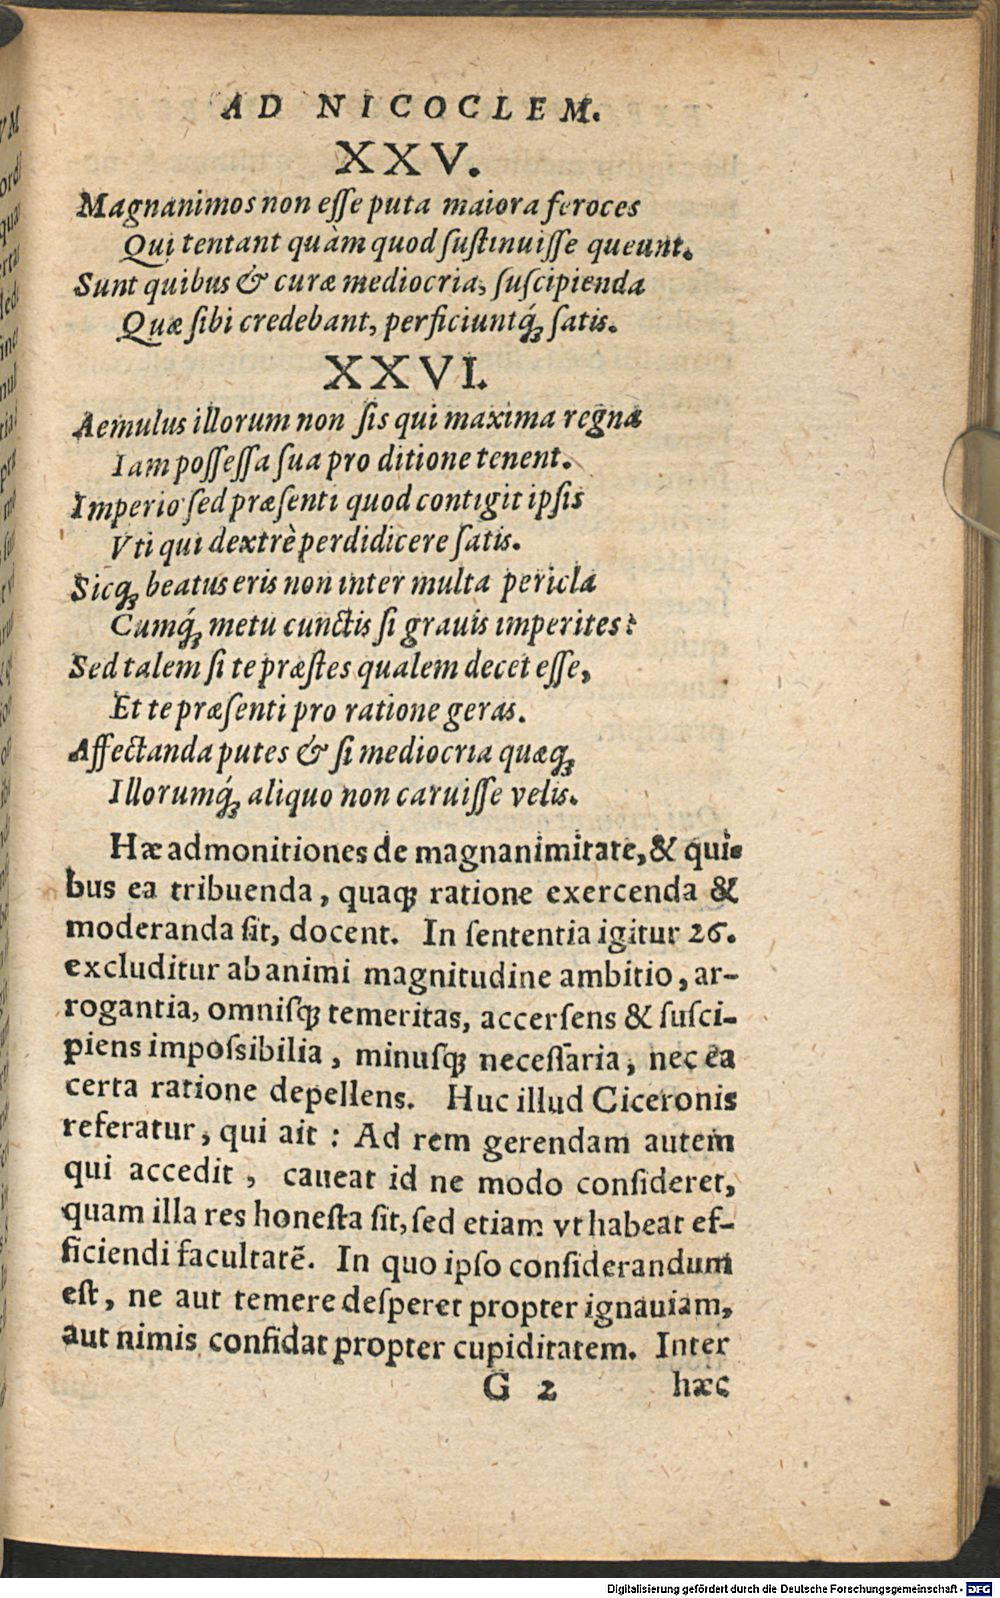 AD NICOCLEM.
XXV.
Magnanimos non eſſe puta maiora feroces
Qui tentant quàm quod ſuſtinuiſſe queunt.
Sunt quibus & curæ mediocria, ſuſcipienda
Quæ ſibi credebant, perficiuntq́ꝫ ſatis.
XXVI.
Aemulus illorum non ſis qui maxima regna
Iam poſſeſſa ſua pro ditione tenent.
Imperio ſed præſenti quod contigit ipſis
Vti qui dextrè perdidicere ſatis.
Sicqꝫ beatus eris non inter multa pericla
Cumq́ꝫ metu cunctis ſi grauis imperites:
Sed talem ſi te præſtes qualem decet eſſe,
Et te præſenti pro ratione geras.
Affectanda putes & ſi mediocria quæqꝫ
Illorumq́ꝫ aliquo non caruiſſe velis.
Hæ admonitiones de magnanimitate, & qui-
bus ea tribuenda, quaqꝫ ratione exercenda &
moderanda ſit, docent. In ſententia igitur 26.
excluditur ab animi magnitudine ambitio, ar-
rogantia, omniſqꝫ temeritas, accerſens & ſuſci-
piens impoſsibilia, minuſqꝫ neceſſaria, nec ea
certa ratione depellens. Huc illud Ciceronis
referatur, qui ait : Ad rem gerendam autem
qui accedit, caueat id ne modo conſideret,
quam illa res honeſta ſit, ſed etiam vt habeat ef-
ficiendi facultatē. In quo ipſo conſiderandum
eſt, ne aut temere deſperet propter ignauiam,
aut nimis confidat propter cupiditatem. Inter
G 2 hæc
Digitalisierung gefördert durch die Deutsche Forschungsgemeinschaft - DFG